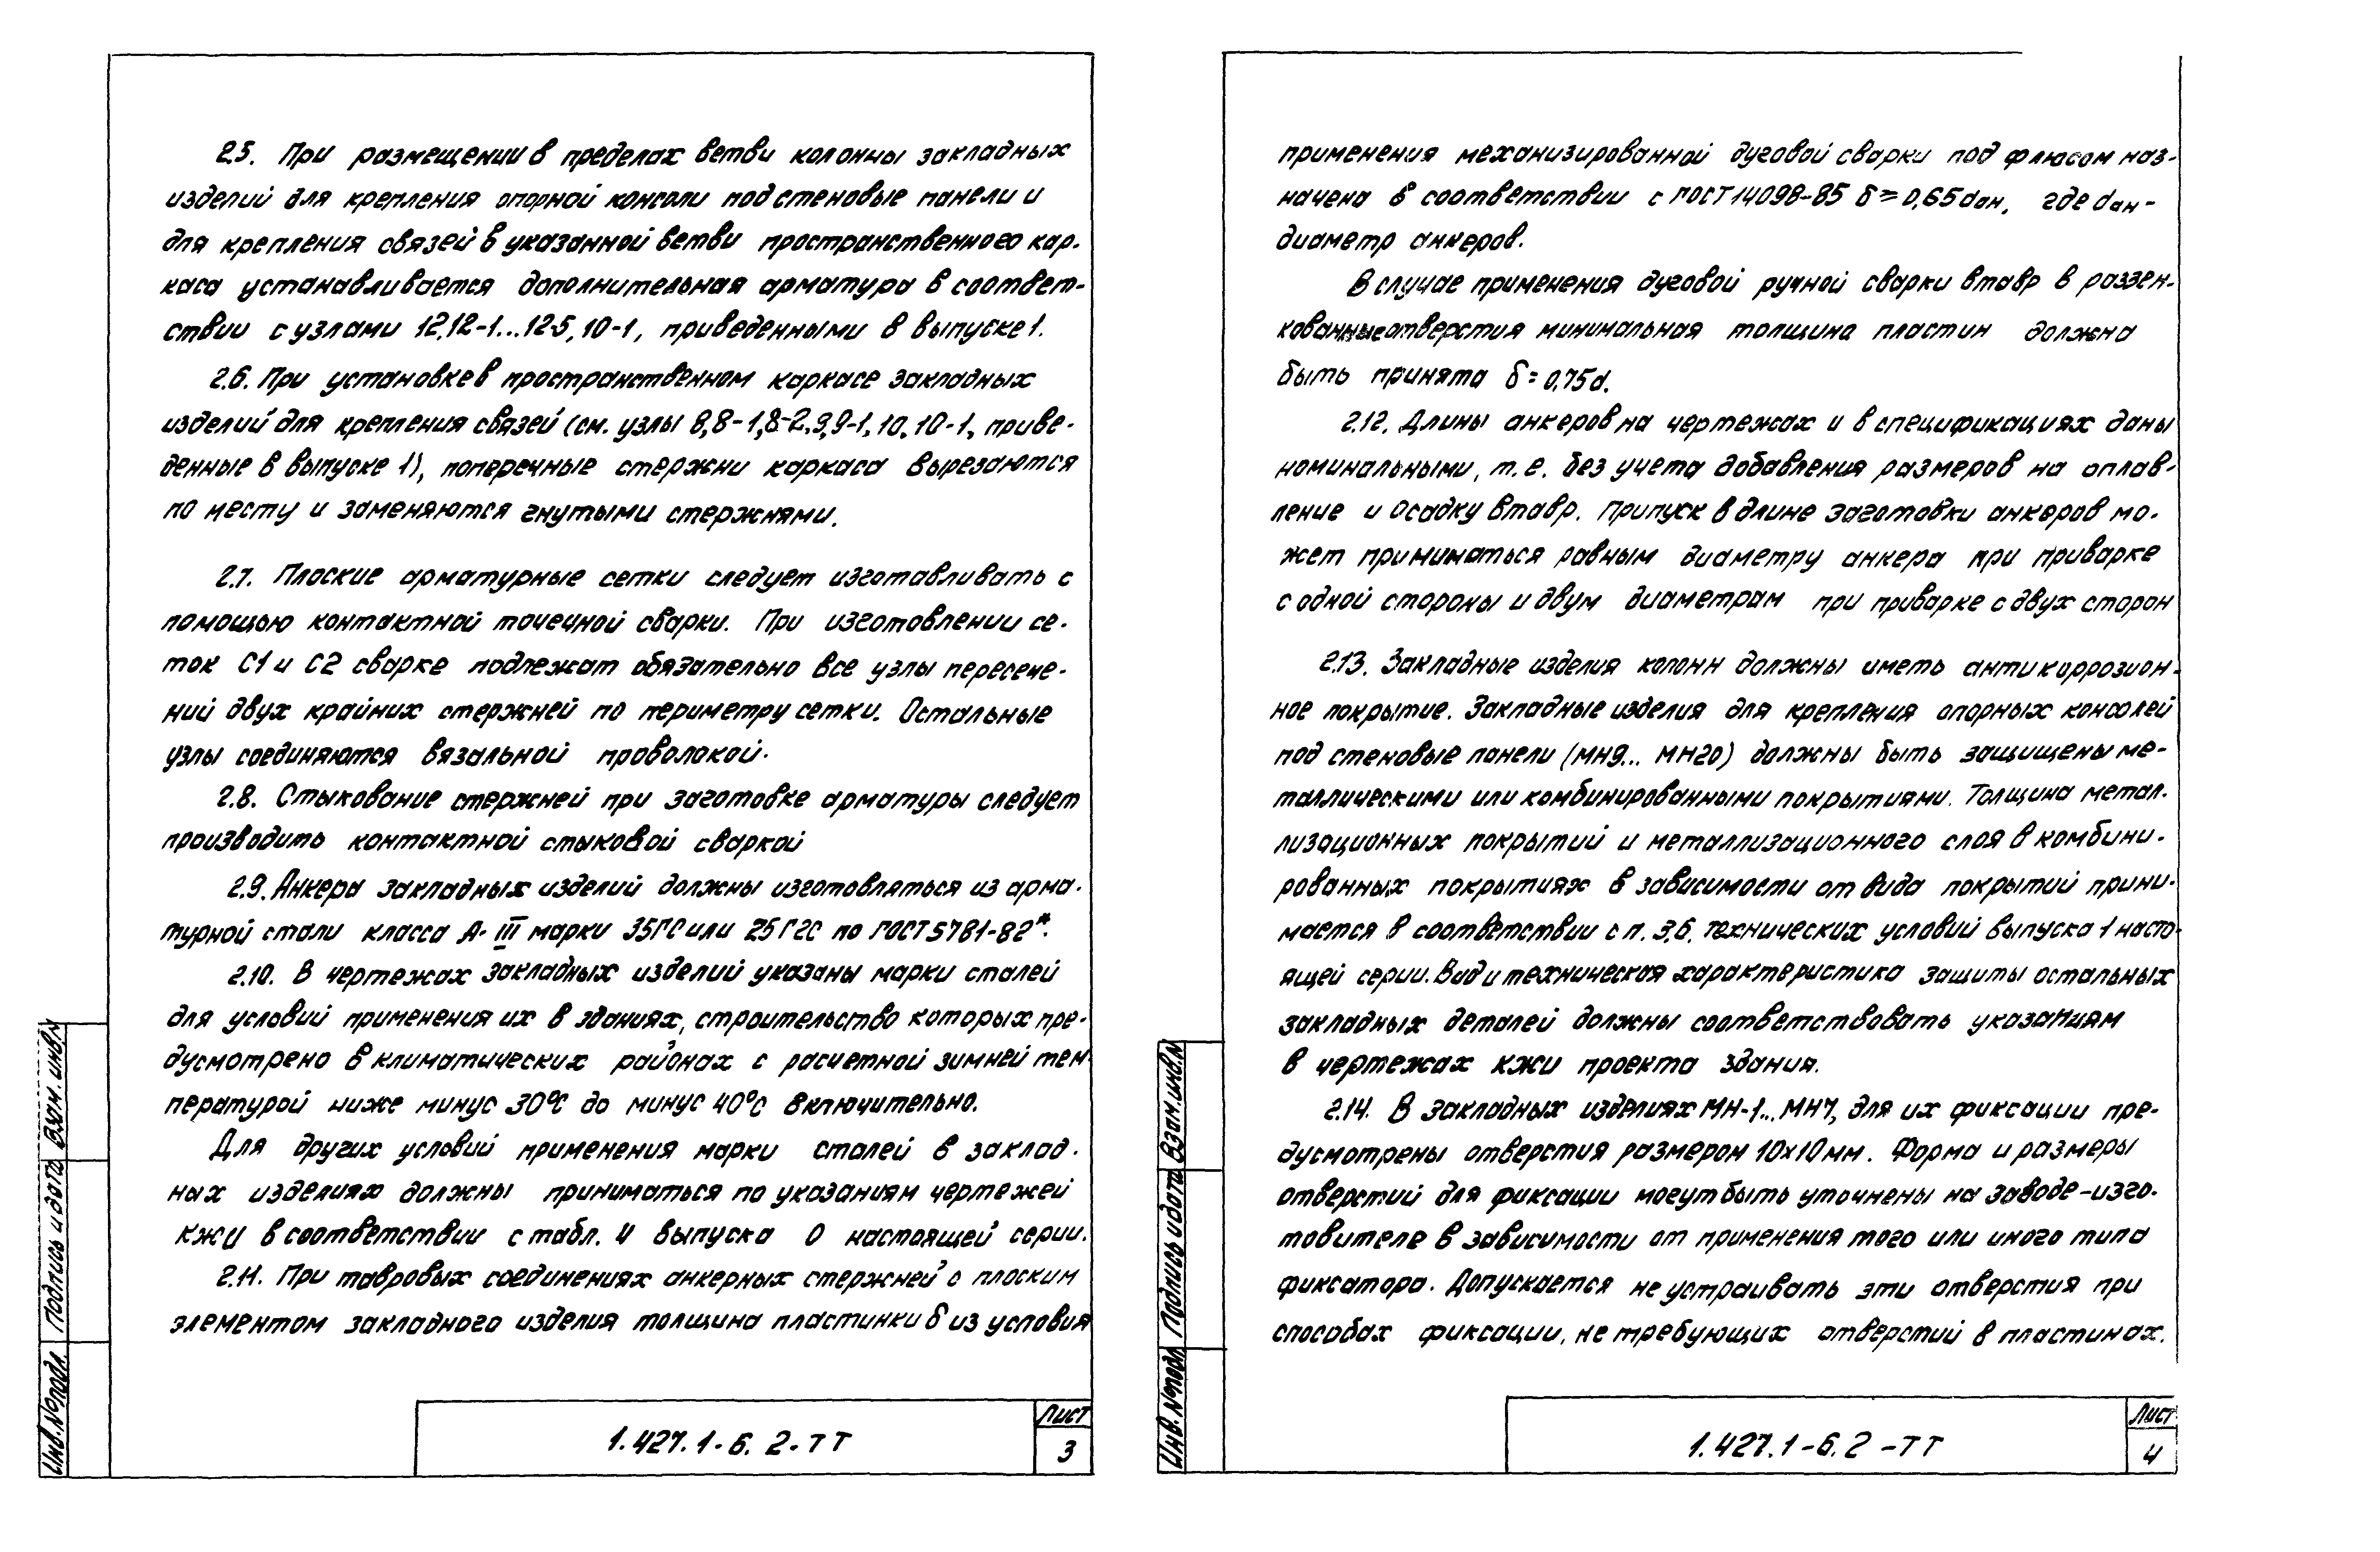 2.5. При размещении в пределах ветви колонны закладных
изделий для крепления опорной консоли под стеновые панели и
для крепления связей в указанной ветви пространственного кар-
каса устанавливается дополнительная арматура в соответ-
ствии с узлами 12,12-1...12-5, 10-1, приведенными в выпуске 1.
2.6. При установке в пространственном каркасе закладных
изделий для крепления связей (см. узлы 8,8-1,8-2,9,9-1,10,10-1, приве-
денные в выпуске 1), поперечные стержни каркаса вырезаются
по месту и заменяются гнутыми стержнями.
2.7. Плоские арматурные сетки следует изготавливать с
помощью контактной точечной сварки. При изготовлении се-
ток С1 и С2 сварке подлежат обязательно все узлы пересече-
ний двух крайних стержней по периметру сетки. Остальные
узлы соединяются вязальной проволокой.
2.8. Стыкование стержней при заготовке арматуры следует
производить контактной стыковой сваркой
2.9. Анкера закладных изделий должны изготовляться из арма-
турной стали класса А-III марки 35ГС или 25Г2С по ГОСТ 5781-82*.
2.10. В чертежах закладных изделий указаны марки сталей
для условий применения их в зданиях, строительство которых пре-
дусмотрено в климатических районах с расчетной зимней тем-
пературой ниже минус 30°С до минус 40°С включительно.
Для других условий применения марки сталей в заклад-
ных изделиях должны приниматься по указаниям чертежей
КЖИ в соответствии с табл. 4 выпуска 0 настоящей серии.
2.11. При тавровых соединениях анкерных стержней с плоским
элементом закладного изделия толщина пластинки δ из условия
1.427.1-6.2-ТТ
Лист
3
Инв.№подл.
Подпись и дата
Взам.инв.№
применения механизированной дуговой сварки под флюсом наз-
начена в соответствии с ГОСТ 14098-85 δ ≥ 0,65dан, где dан-
диаметр анкеров.
В случае применения дуговой ручной сварки втавр в раззен-
кованные отверстия минимальная толщина пластин должна
быть принята δ = 0,75d.
2.12. Длины анкеров на чертежах и в спецификациях даны
номинальными, т.е. без учета добавления размеров на оплав-
ление и осадку втавр. Припуск в длине заготовки анкеров мо-
жет приниматься равным диаметру анкера при приварке
с одной стороны и двум диаметрам при приварке с двух сторон
2.13. Закладные изделия колонн должны иметь антикоррозион-
ное покрытие. Закладные изделия для крепления опорных консолей
под стеновые панели (МН9... МН20) должны быть защищены ме-
таллическими или комбинированными покрытиями. Толщина метал-
лизационных покрытий и металлизационного слоя в комбини-
рованных покрытиях в зависимости от вида покрытий прини-
мается в соответствии с п. 3.6. технических условий выпуска 1 насто-
ящей серии. Вид и техническая характеристика защиты остальных
закладных деталей должны соответствовать указаниям
в чертежах КЖИ проекта здания.
2.14. В закладных изделиях МН-1... МН7, для их фиксации пре-
дусмотрены отверстия размером 10х10мм. Форма и размеры
отверстий для фиксации могут быть уточнены на заводе-изго-
товителе в зависимости от применения того или иного типа
фиксатора. Допускается не устраивать эти отверстия при
способах фиксации, не требующих отверстий в пластинах.
1.427.1-6.2-ТТ
Лист
4
Инв.№подл
Подпись и дата
Взам.инв.№